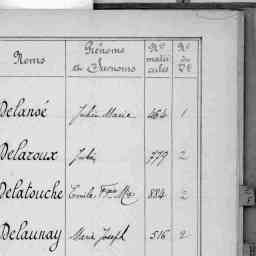 Noms Prénoms et Surnoms Nos matri cules No du Rt
Delansé Julien Marie 464 1
Delaroux Jules 779 2
Delatouche Emile Fçois Mie 884 2
Delaunay Marie Joseph 516 2